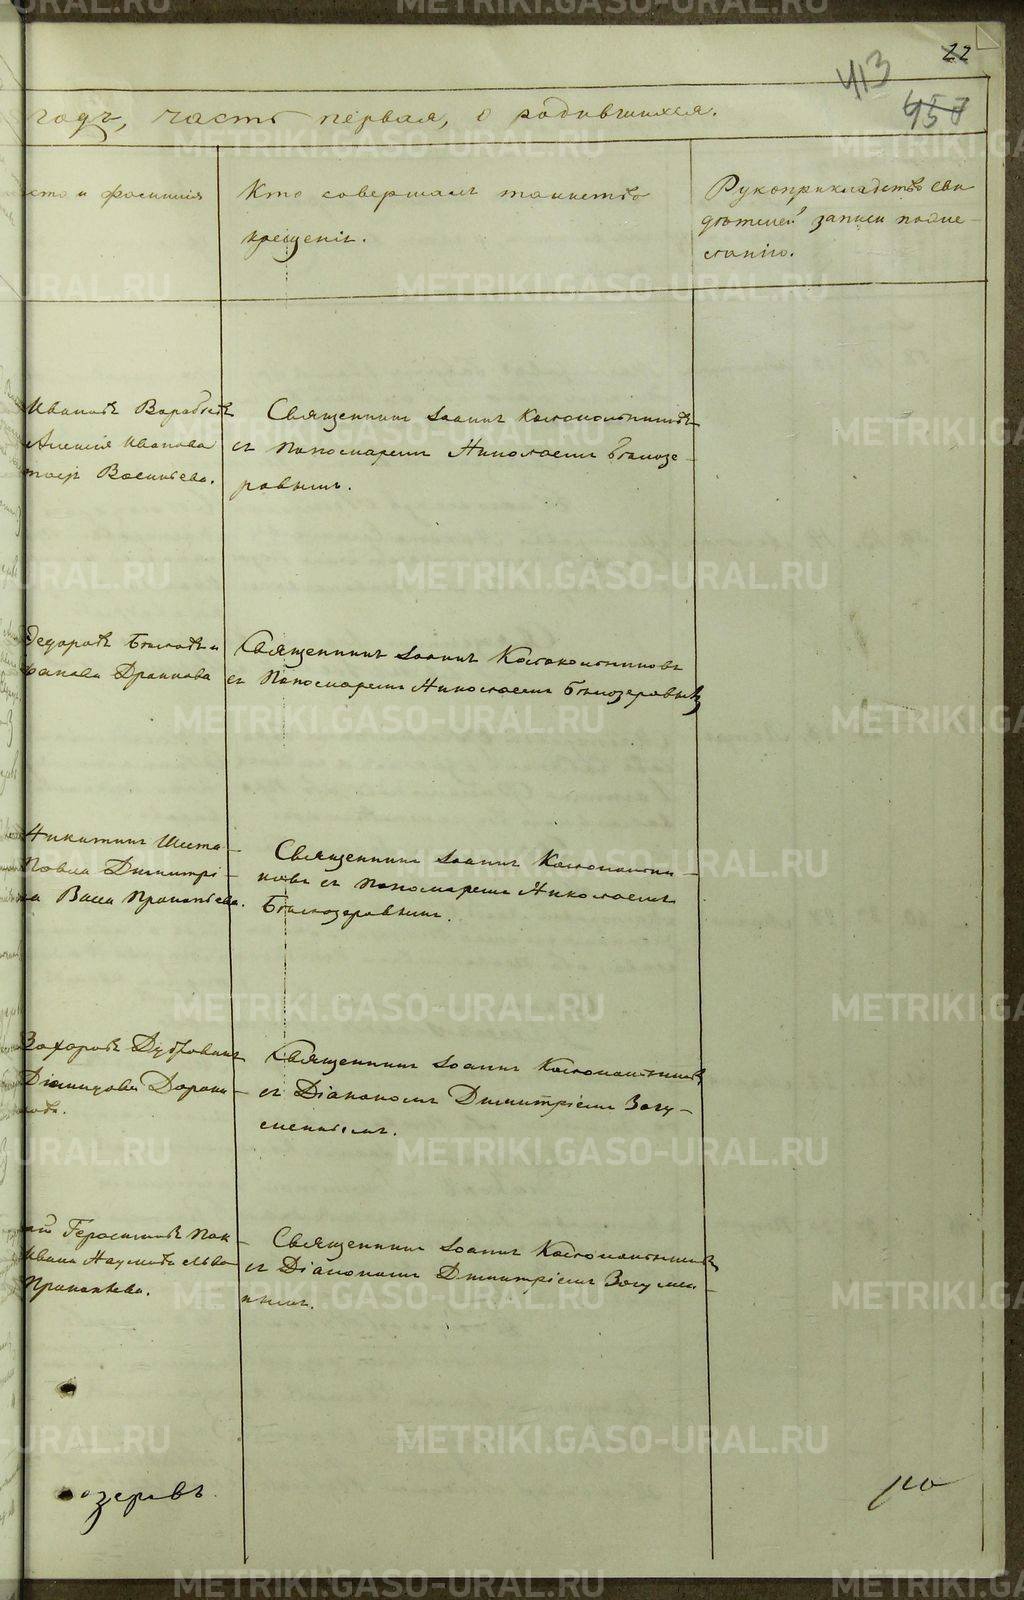 22
413
457
годъ, часть первая, о родившихся.
сто и фамилія
Кто совершалъ таинство
крещенія.
Рукоприкладство сви
дѣтелей записи по же
ланію.
Ивановъ
Алексія Иванова
Васильева.
Священникъ Іоаннъ Колокольниковъ
съ Пономаремъ Николаемъ Бѣлозе-
ровымъ.
Ѳедоровъ Бѣловъ и
Священникъ Іоаннъ Колокольниковъ
съ Пономаремъ Николаемъ Бѣлозеровымъ
Никитинъ Шеста-
Павла Димитрі-
на Васи Прокопьева.
Священникъ Іоаннъ Колокольни-
ковъ съ Пономаремъ Николаемъ
Бѣлозеровымъ.
Захаровъ Дубровинъ
Діомидова Дорони-
Священникъ Іоаннъ Колокольниковъ
съ Діакономъ Димитріемъ Загу-
меннымъ.
Герасимовъ Пок-
Ивана Наумова Льва
Прокопьева.
Священникъ Іоаннъ Колокольниковъ
съ Діакономъ Димитріемъ Загумен-
нымъ.
озеровъ
METRIKI.GASO-URAL.RU